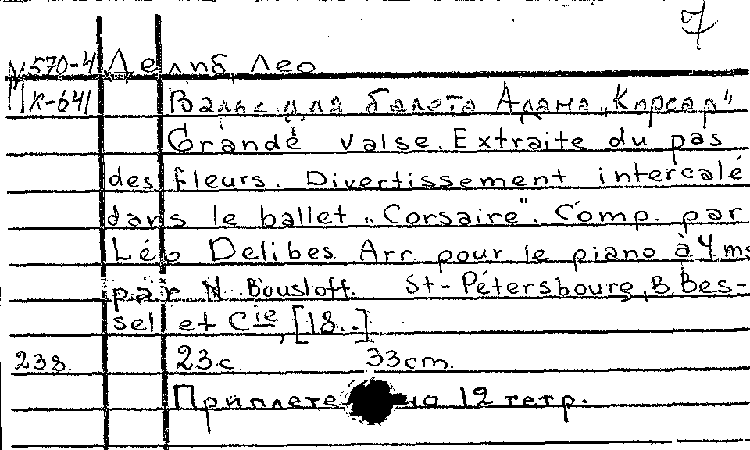 7
М570-4 Делиб, Лео
К-641 Вальс для балета Адана „Корсар"
Grande valse. Extraite du pas
des fleurs. Divertissement intercalé
dans le ballet „Corsaire". Comp. par
Léo Delibes Arr pour le piano à 4 ms
par N. Bousloff. St-Pétersbourg, B. Bes-
sel et Cie, [18..]
238. 23с 33cm.
12 тетр.